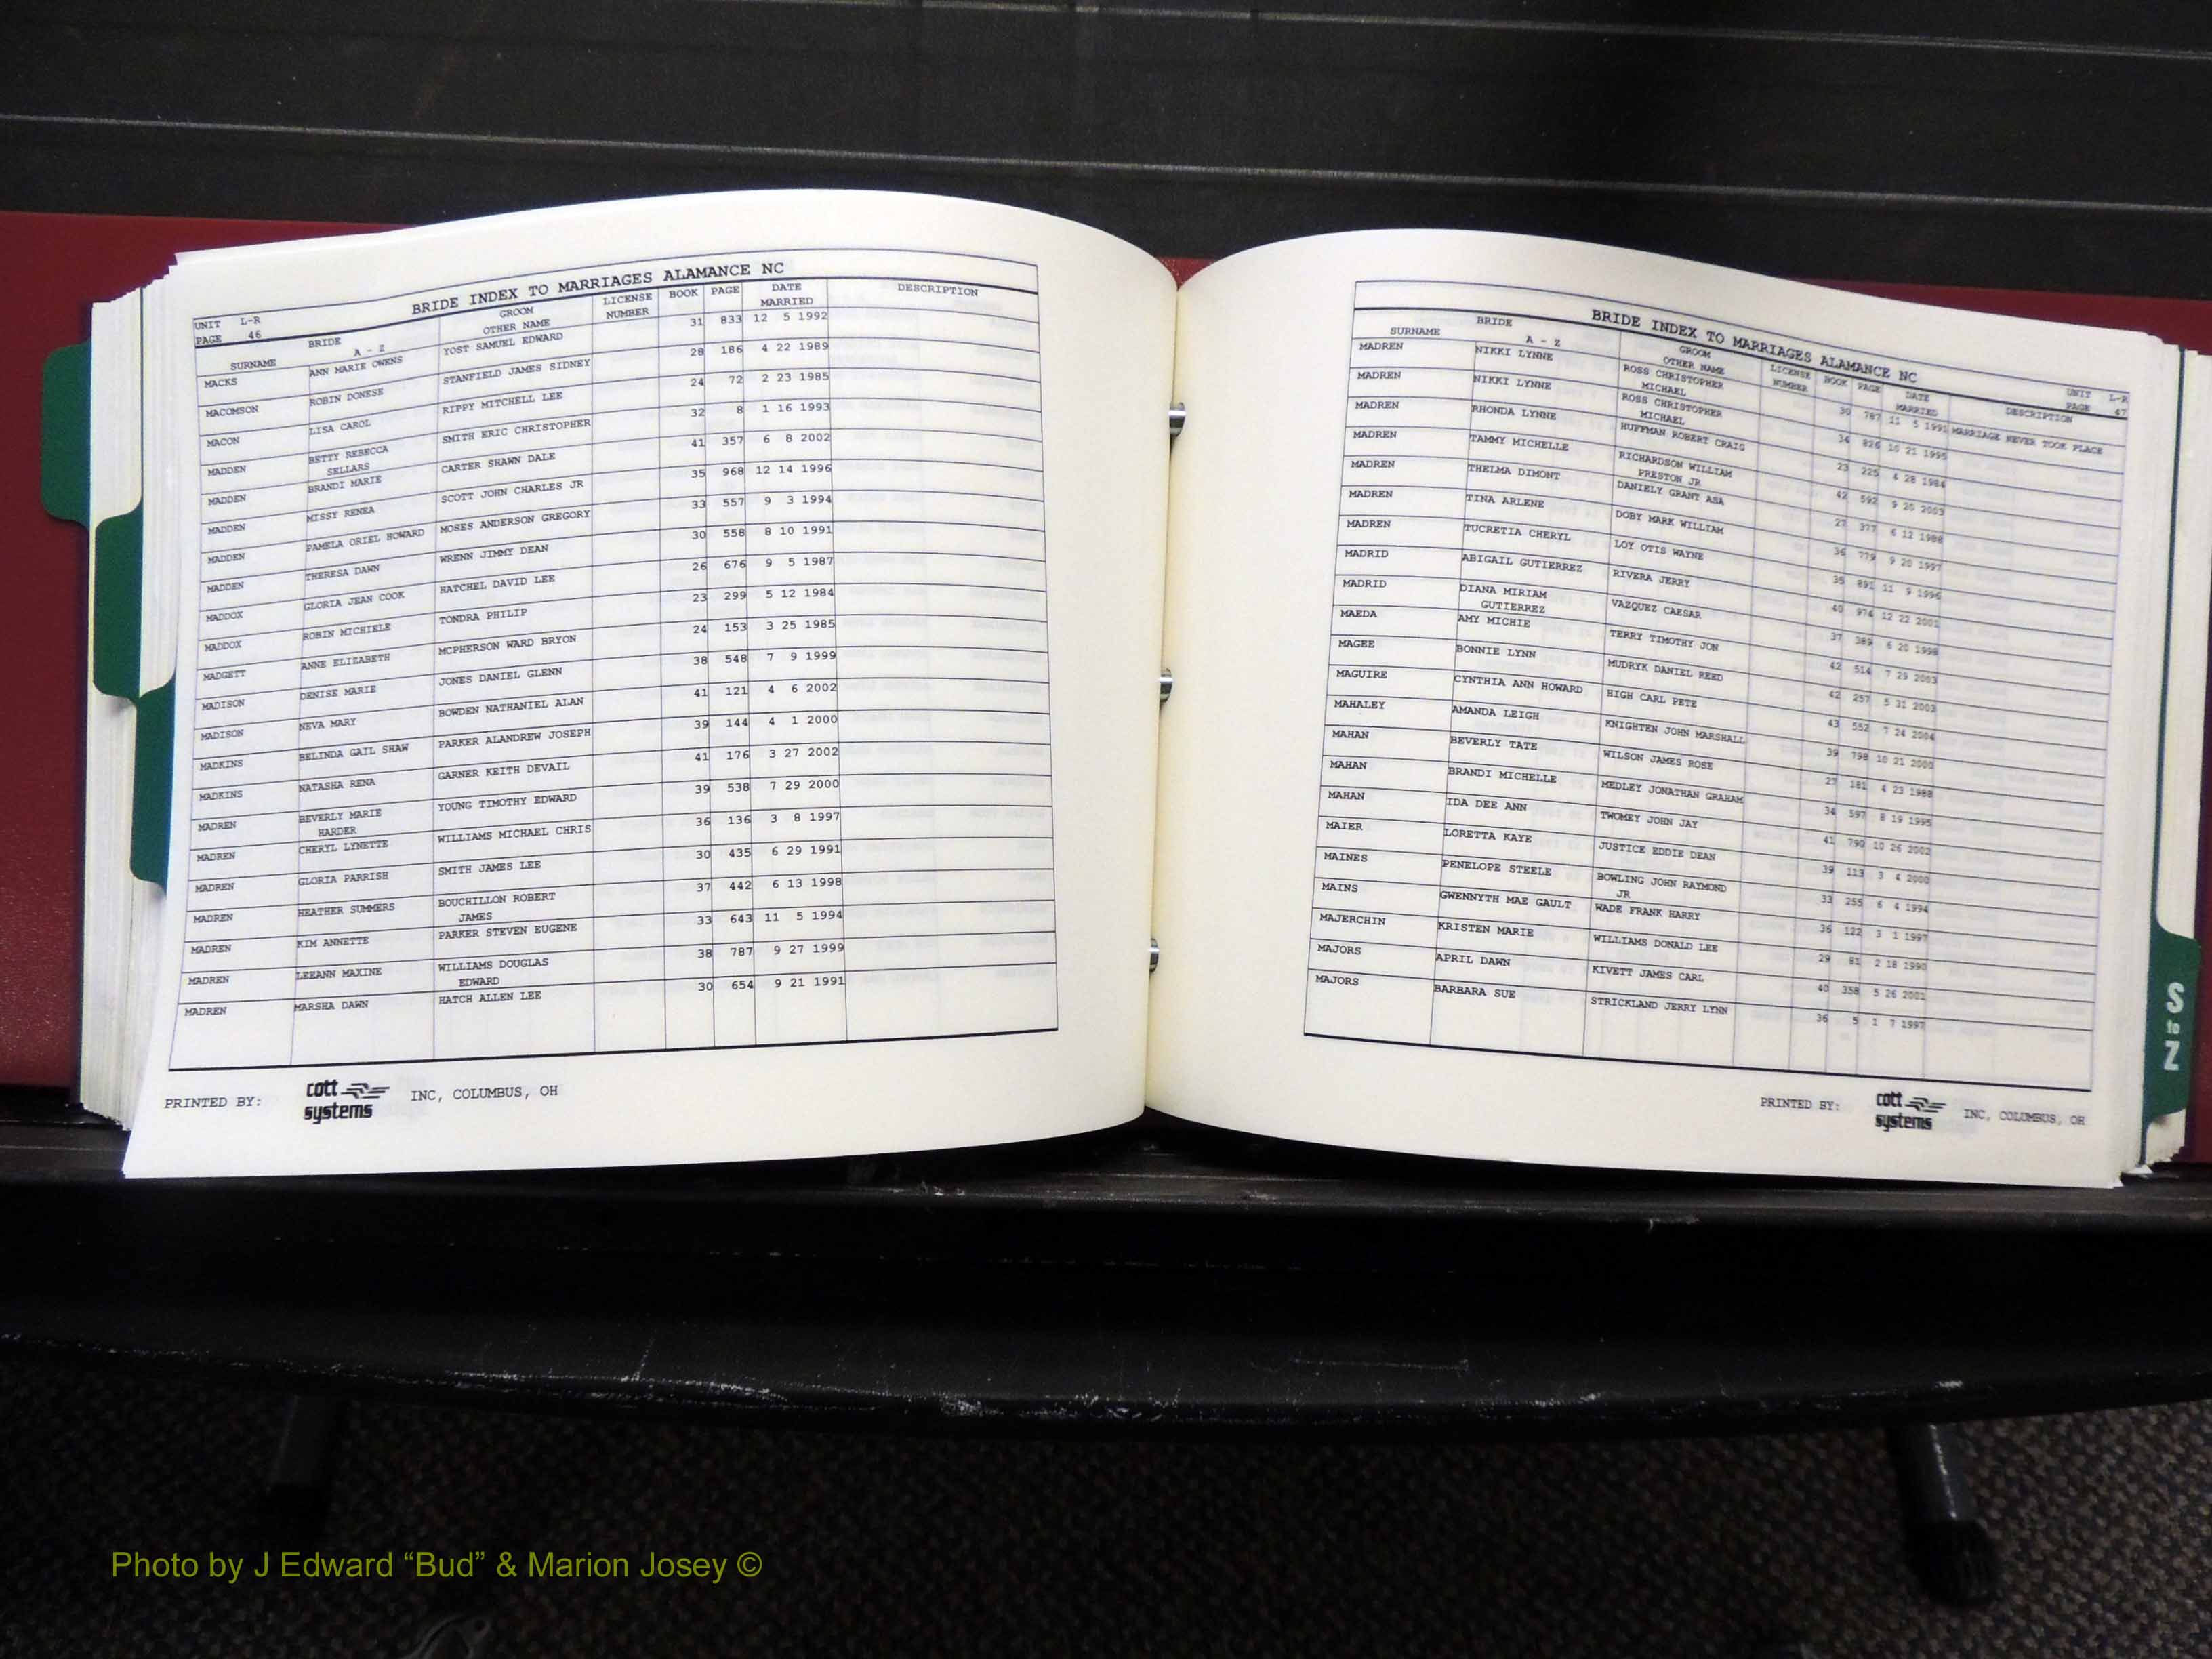 BRIDE INDEX TO MARRIAGES ALAMANCE NC
UNIT L-R
PAGE 46
SURNAME BRIDE A - Z GROOM OTHER NAME LICENSE NUMBER BOOK PAGE DATE MARRIED DESCRIPTION
MACKS ANN MARIE OWENS YOST SAMUEL EDWARD 31 833 12 5 1992
MACOMSON ROBIN DONESE STANFIELD JAMES SIDNEY 28 186 4 22 1989
MACON LISA CAROL RIPPY MITCHELL LEE 24 72 2 23 1985
MADDEN BETTY REBECCA SMITH ERIC CHRISTOPHER 32 8 1 16 1993
SELLARS
MADDEN BRANDI MARIE CARTER SHAWN DALE 41 357 6 8 2002
MADDEN MISSY RENEA SCOTT JOHN CHARLES JR 35 968 12 14 1996
MADDEN PAMELA ORIEL HOWARD MOSES ANDERSON GREGORY 33 557 9 3 1994
MADDEN THERESA DAWN WRENN JIMMY DEAN 30 558 8 10 1991
MADDOX GLORIA JEAN COOK HATCHEL DAVID LEE 26 676 9 5 1987
MADDOX ROBIN MICHIELE TONDRA PHILIP 23 299 5 12 1984
MADGETT ANNE ELIZABETH MCPHERSON WARD BRYON 24 153 3 25 1985
MADISON DENISE MARIE JONES DANIEL GLENN 38 548 7 9 1999
MADISON NEVA MARY BOWDEN NATHANIEL ALAN 41 121 4 6 2002
MADKINS BELINDA GAIL SHAW PARKER ALANDREW JOSEPH 39 144 4 1 2000
MADKINS NATASHA RENA GARNER KEITH DEVAIL 41 176 3 27 2002
MADREN BEVERLY MARIE YOUNG TIMOTHY EDWARD 39 538 7 29 2000
HARDER
MADREN CHERYL LYNETTE WILLIAMS MICHAEL CHRIS 36 136 3 8 1997
MADREN GLORIA PARRISH SMITH JAMES LEE 30 435 6 29 1991
MADREN HEATHER SUMMERS BOUCHILLON ROBERT 37 442 6 13 1998
JAMES
MADREN KIM ANNETTE PARKER STEVEN EUGENE 33 643 11 5 1994
MADREN LEEANN MAXINE WILLIAMS DOUGLAS 38 787 9 27 1999
EDWARD
MADREN MARSHA DAWN HATCH ALLEN LEE 30 654 9 21 1991
PRINTED BY: cott systems INC, COLUMBUS, OH
BRIDE INDEX TO MARRIAGES ALAMANCE NC
UNIT L-R
PAGE 47
SURNAME BRIDE A - Z GROOM OTHER NAME LICENSE NUMBER BOOK PAGE DATE MARRIED DESCRIPTION
MADREN NIKKI LYNNE ROSS CHRISTOPHER 30 787 11 5 1991 MARRIAGE NEVER TOOK PLACE
MICHAEL
MADREN NIKKI LYNNE ROSS CHRISTOPHER 34 826 10 21 1995
MICHAEL
MADREN RHONDA LYNNE HUFFMAN ROBERT CRAIG 23 225 4 28 1984
MADREN TAMMY MICHELLE RICHARDSON WILLIAM 42 592 9 20 2003
PRESTON JR
MADREN THELMA DIMONT DANIELY GRANT ASA 27 377 6 12 1988
MADREN TINA ARLENE DOBY MARK WILLIAM 36 779 9 20 1997
MADREN TUCRETIA CHERYL LOY OTIS WAYNE 35 891 11 9 1996
MADRID ABIGAIL GUTIERREZ RIVERA JERRY 40 974 12 22 2001
MADRID DIANA MIRIAM VAZQUEZ CAESAR 37 389 6 20 1998
GUTIERREZ
MAEDA AMY MICHIE TERRY TIMOTHY JON 42 514 7 29 2003
MAGEE BONNIE LYNN MUDRYK DANIEL REED 42 257 5 31 2003
MAGUIRE CYNTHIA ANN HOWARD HIGH CARL PETE 43 552 7 24 2004
MAHALEY AMANDA LEIGH KNIGHTEN JOHN MARSHALL 39 798 10 21 2000
MAHAN BEVERLY TATE WILSON JAMES ROSE 27 181 4 23 1988
MAHAN BRANDI MICHELLE MEDLEY JONATHAN GRAHAM 34 597 8 19 1995
MAHAN IDA DEE ANN TWOMEY JOHN JAY 41 790 10 26 2002
MAIER LORETTA KAYE JUSTICE EDDIE DEAN 39 113 3 4 2000
MAINES PENELOPE STEELE BOWLING JOHN RAYMOND 33 255 6 4 1994
JR
MAINS GWENNYTH MAE GAULT WADE FRANK HARRY 36 122 3 1 1997
MAJERCHIN KRISTEN MARIE WILLIAMS DONALD LEE 29 81 2 18 1990
MAJORS APRIL DAWN KIVETT JAMES CARL 40 358 5 26 2001
MAJORS BARBARA SUE STRICKLAND JERRY LYNN 36 5 1 7 1997
PRINTED BY: cott systems INC, COLUMBUS, OH
S
to
Z
Photo by J Edward “Bud” & Marion Josey ©